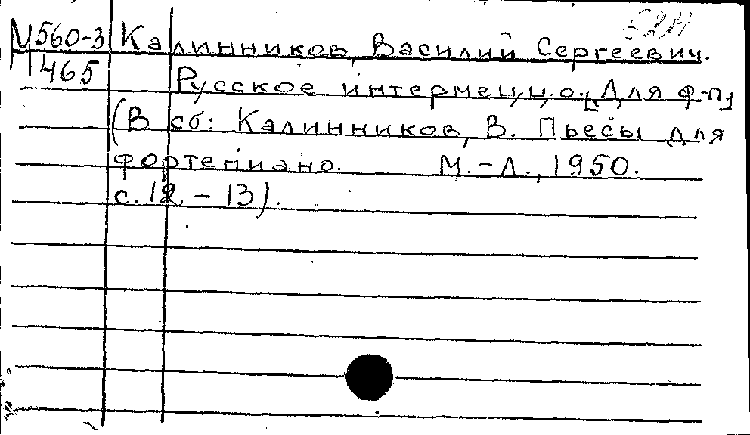 М560-3 Калинников, Василий Сергеевич.
465 Русское интермеццо. [Для ф-п]
(В сб: Калинников, В. Пьесы для
фортепиано. М.-Л., 1950.
с. 12. - 13).